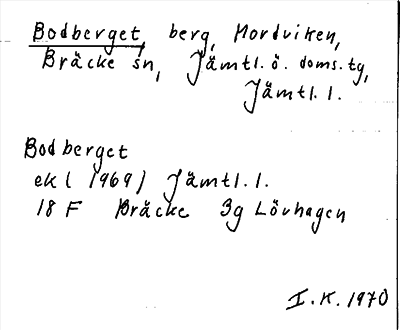 Bodberget, berg, Mordviken,
Bräcke sn, Jämtl. ö. doms. tg,
Jämtl. l.
Bodberget
ekl (1969) Jämtl. l.
18 F Bräcke 3g Lövhagen
I. K. 1970